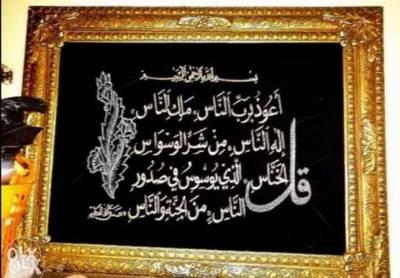 بسم الله الرحمن الرحيم
أعوذ برب الناس ملك الناس
إله الناس من شر الوسواس
الخناس الذي يوسوس في صدور
قل
الناس من الجنة والناس
OLX